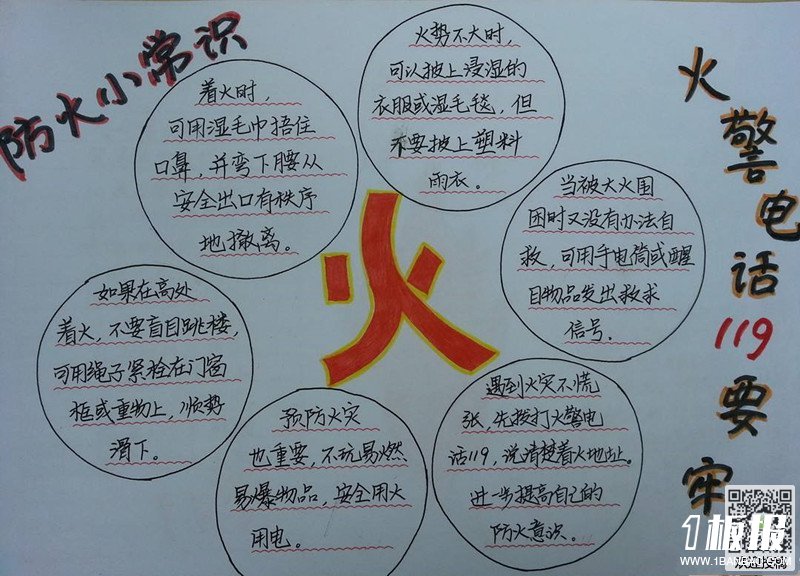 防火小常识
着火时，
可用湿毛巾捂住
口鼻，并弯下腰从
安全出口有秩序
地撤离。
火势不大时，
可以披上浸湿的
衣服或湿毛毯，但
不要披上塑料
雨衣。
当被大火围
困时又没有办法自
救，可用手电筒或醒
目物品发出救求
信号。
如果在高处
着火，不要盲目跳楼，
可用绳子紧栓在门窗
框或重物上，顺势
滑下。
火
预防火灾
也重要，不玩易燃
易爆物品，安全用火
用电。
遇到火灾不慌
张，先拨打火警电
话119，说清楚着火地址。
进一步提高自己的
防火意识。
火警电话119要牢
1板报
WWW.1BANBAO.COM
欢迎投稿